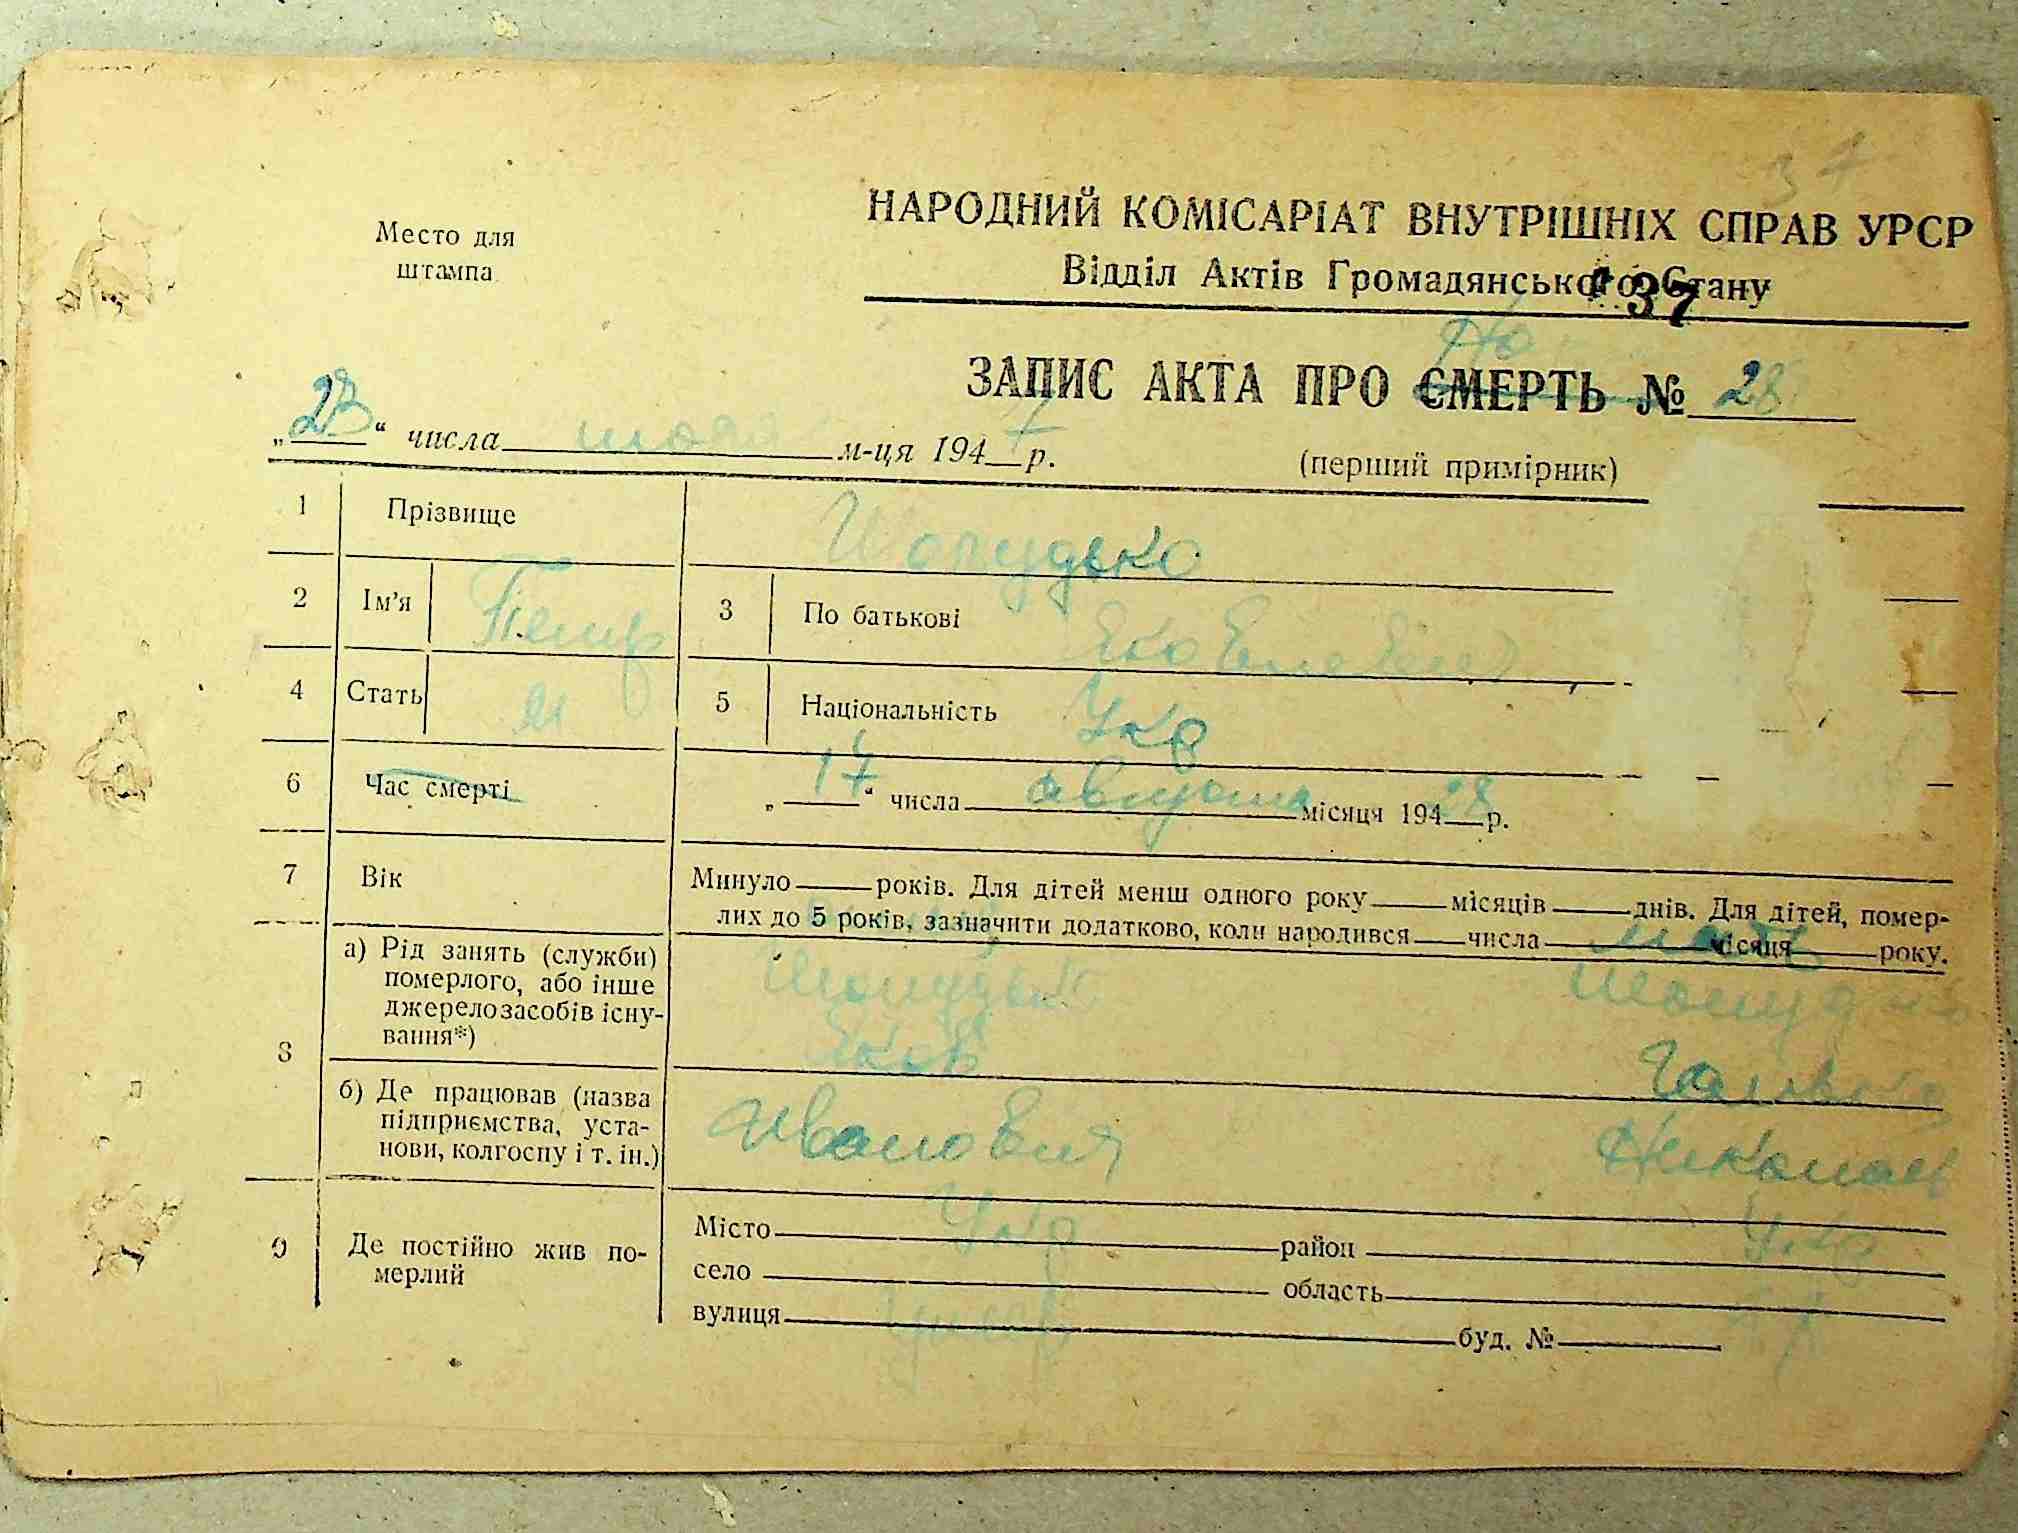 37
Место для
штампа
НАРОДНИЙ КОМІСАРІАТ ВНУТРІШНІХ СПРАВ УРСР
Відділ Актів Громадянського Стану
37
ЗАПИС АКТА ПРО СМЕРТЬ № 28
„23“ числа м-ця 1947 р.
(перший примірник)
1 Прізвище
2 Ім'я Петр 3 По батькові Яковлевич
4 Стать м 5 Національність Укр
6 Час смерті „17“ числа августа місяця 194 28 р.
7 Вік Минуло років. Для дітей менш одного року місяців днів. Для дітей, помер-
лих до 5 років, зазначити додатково, коли народився числа місяця року.
мать
8 а) Рід занять (служби)
померлого, або інше
джерело засобів існу-
вання*)
Яков
б) Де працював (назва
підприємства, уста-
нови, колгоспу і т. ін.)
Иванович
9 Де постійно жив по-
мерлий
Місто Укр район Укр
село область
вулиця буд. №